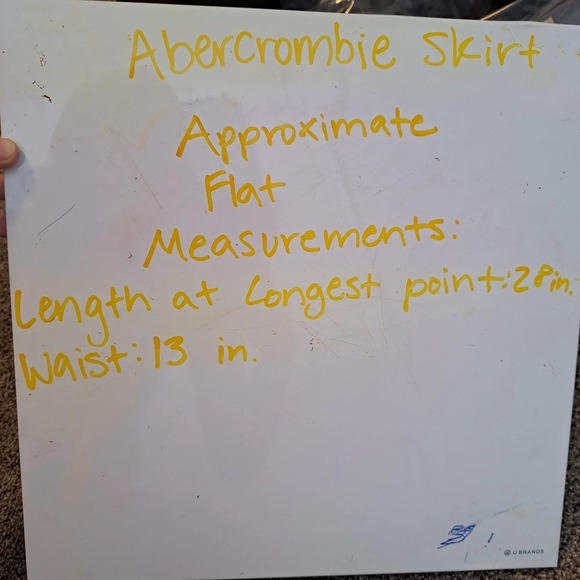 Abercrombie Skirt
Approximate
Flat
Measurements:
Length at longest point: 28 in.
Waist: 13 in.
U BRANDS